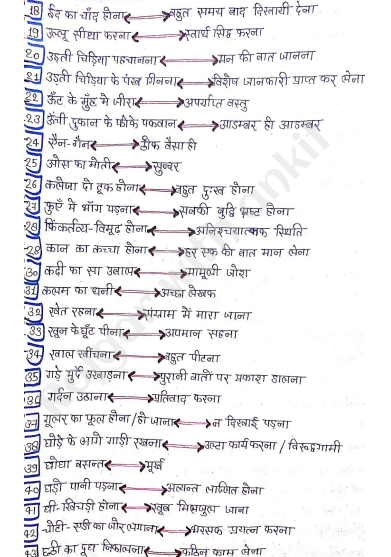 18 ईद का चाँद होना ↔ बहुत समय बाद दिखायी देना
19 उल्लू सीधा करना ↔ स्वार्थ सिद्ध करना
20 उड़ती चिड़िया पहचानना ↔ मन की बात जानना
21 उड़ती चिड़िया के पंख गिनना ↔ विशेष जानकारी प्राप्त कर लेना
22 ऊँट के मुँह मे जीरा ↔ अपर्याप्त वस्तु
23 ऊँची दुकान के फीके पकवान ↔ आडम्बर ही आडम्बर
24 ऐन-गैन ↔ ठीक वैसा ही
25 ओस का मोती ↔ सुन्दर
26 कलेजा दो टूक होना ↔ बहुत दुःख होना
27 कुएँ मे भाँग पड़ना ↔ सबकी बुद्धि भ्रष्ट होना
28 किंकर्तव्य-विमूढ़ होना ↔ अनिश्चयात्मक स्थिति
29 कान का कच्चा होना ↔ हर एक की बात मान लेना
30 कढ़ी का सा उबाल ↔ मामूली जोश
31 कलम का धनी ↔ अच्छा लेखक
32 खेत रहना ↔ संग्राम में मारा जाना
33 खून के घूँट पीना ↔ अपमान सहना
34 खाल खींचना ↔ बहुत पीटना
35 गड़े मुर्दे उखाड़ना ↔ पुरानी बातों पर प्रकाश डालना
36 गर्दन उठाना ↔ प्रतिवाद करना
37 गूलर का फूल होना/हो जाना ↔ न दिखाई पड़ना
38 घोड़े के आगे गाड़ी रखना ↔ उल्टा कार्य करना / विरूद्धगामी
39 घोंघा बसन्त ↔ मूर्ख
40 घड़ो पानी पड़ना ↔ अत्यन्त लज्जित होना
41 घी-खिचड़ी होना ↔ खूब मिलजुल जाना
42 चोटी-एड़ी का जोर लगाना ↔ भरसक प्रयत्न करना
43 छठी का दूध निकालना ↔ कठिन काम लेना